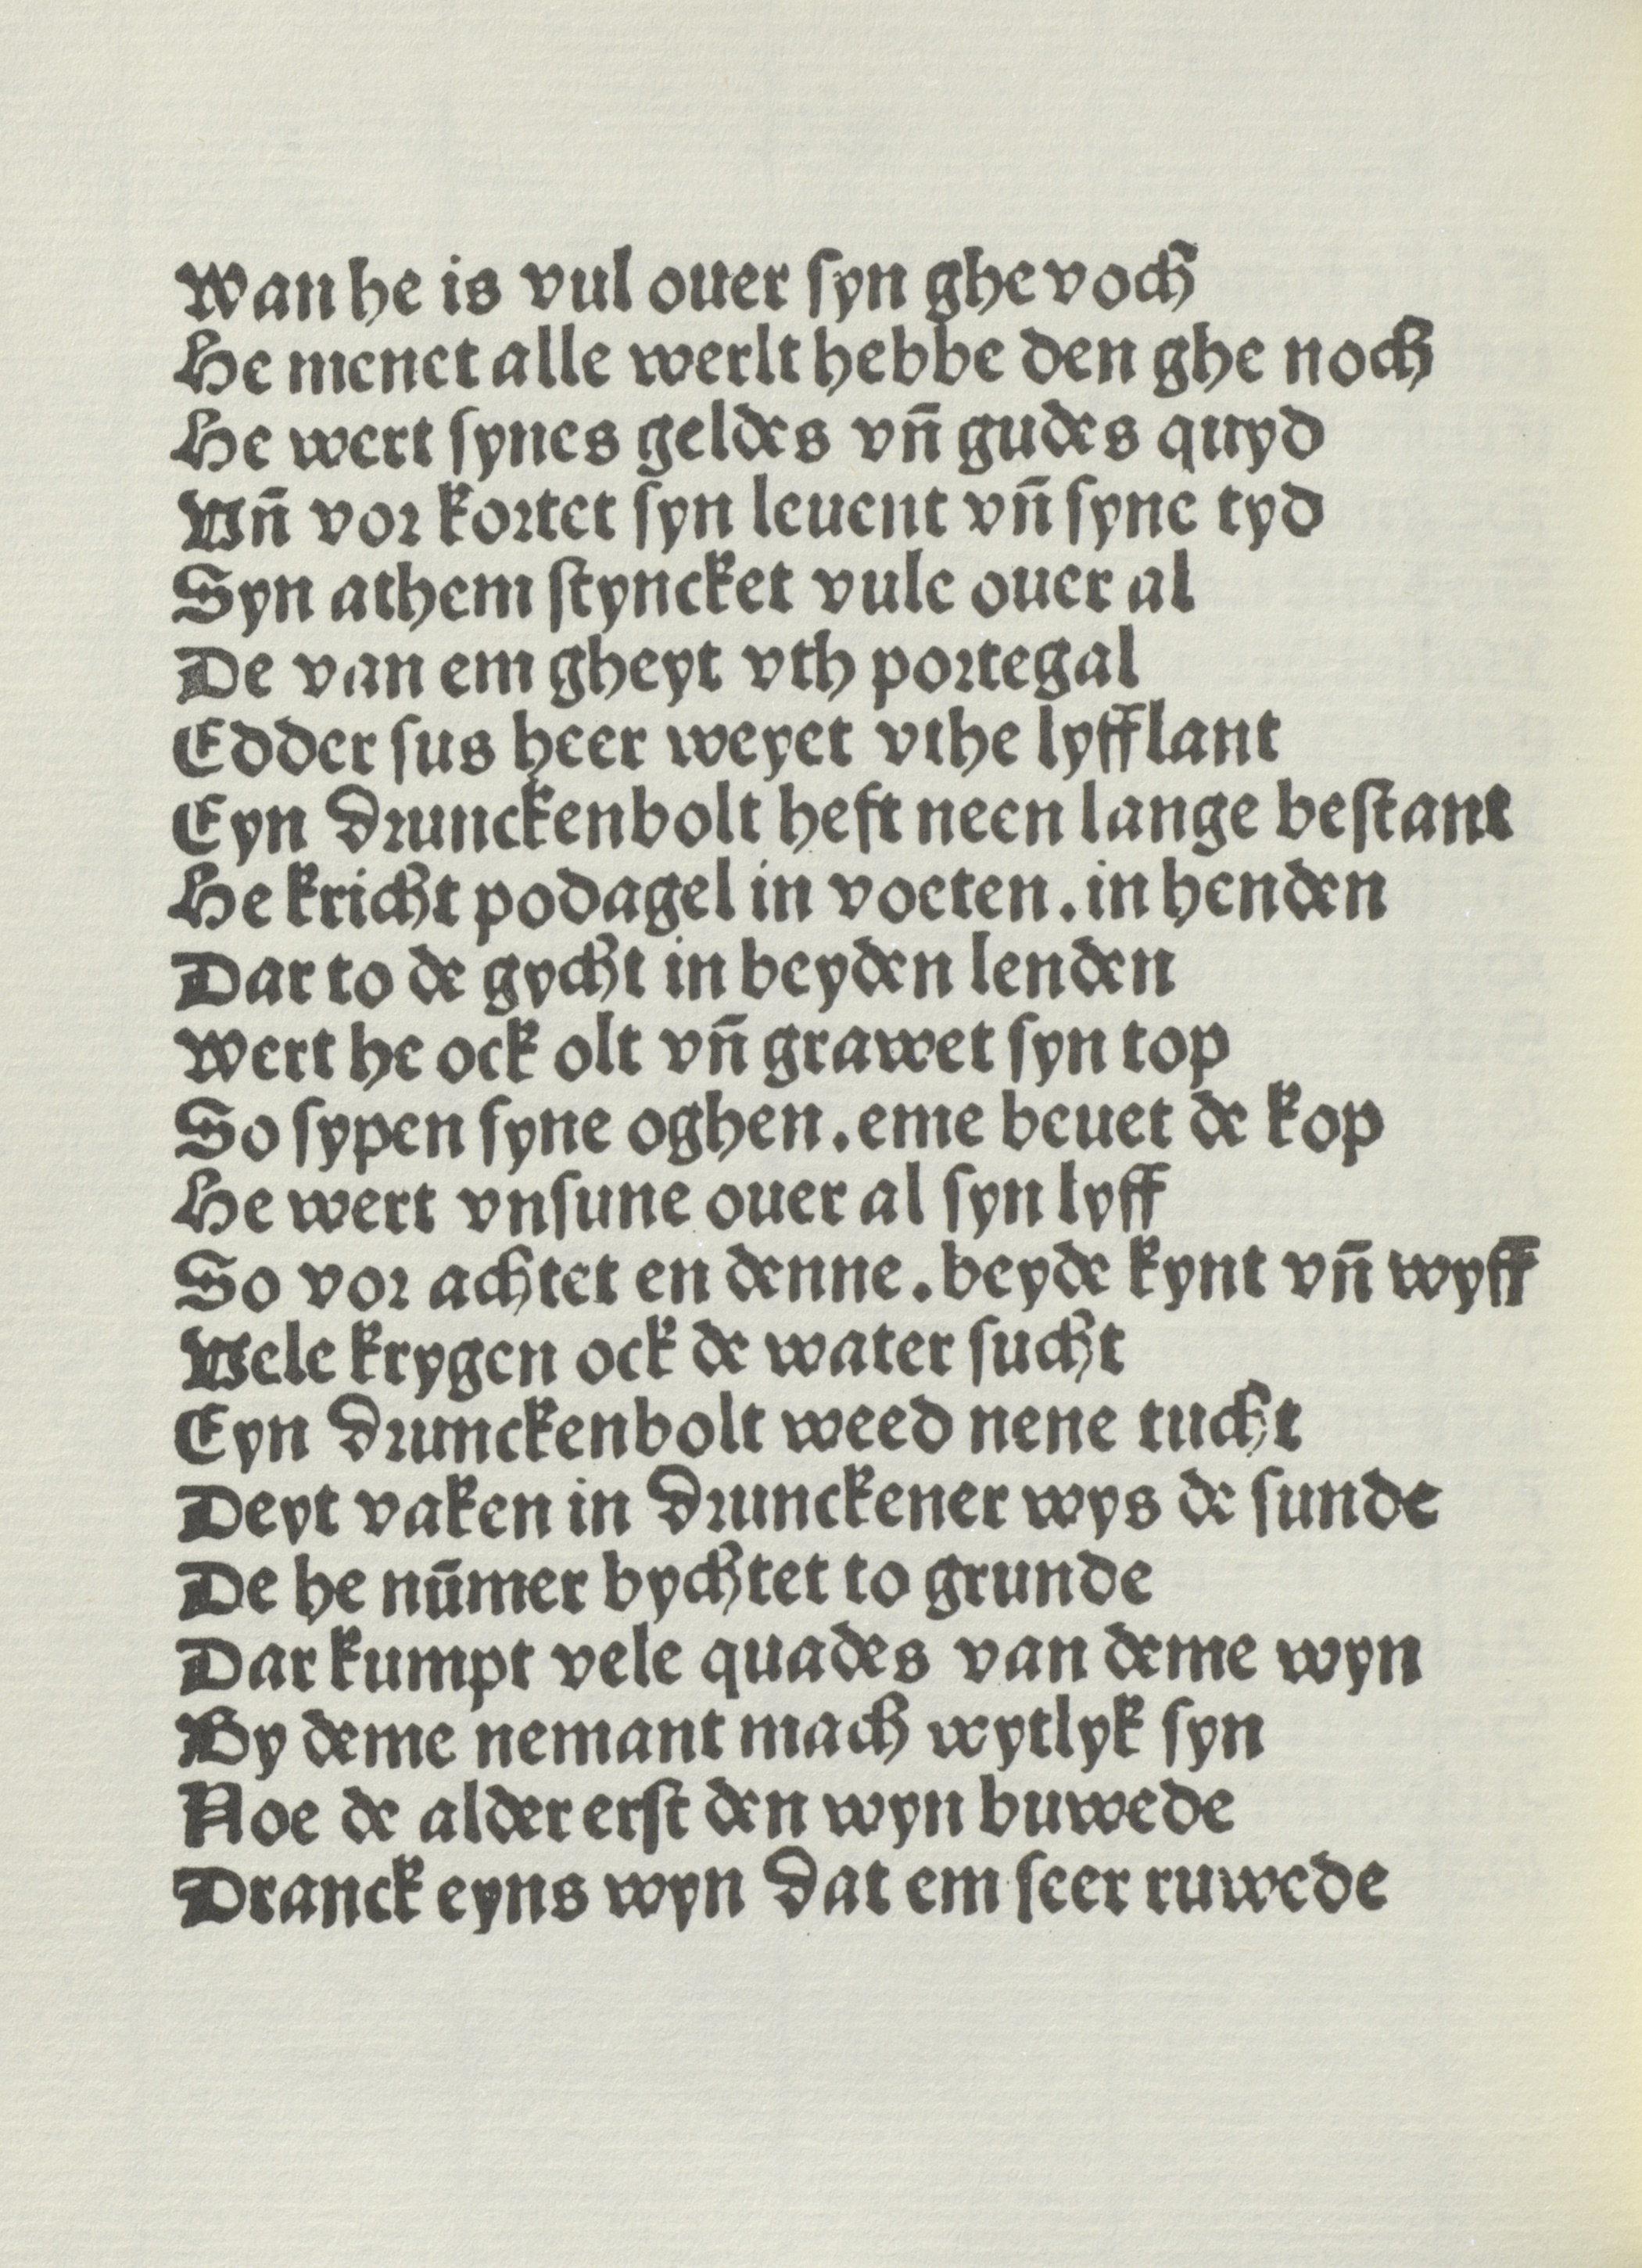 Wan he is vul ouer ſyn ghe voch
He menet alle werlt hebbe den ghe noch
He wert ſynes geldes vn̄ gudes quyd
Vn̄ vor kortet ſyn leuent vn̄ ſyne tyd
Syn athem ſtyncket vule ouer al
De van em gheyt vth portegal
Edder ſus heer weyet vthe lyfflant
Eyn drunckenbolt heft neen lange beſtant
He kricht podagel in voeten. in henden
Dar to de gycht in beyden lenden
Wert he ock olt vn̄ grawet ſyn top
So ſypen ſyne oghen. eme beuet de kop
He wert vnſune ouer al ſyn lyff
So vor achtet en denne. beyde kynt vn̄ wyff
Vele krygen ock de water ſucht
Eyn drunckenbolt weed nene tucht
Deyt vaken in drunckener wys de ſunde
De he nūmer bychtet to grunde
Dar kumpt vele quades van deme wyn
By deme nemant mach wytlyk ſyn
Noe de alder erſt den wyn buwede
Dranck eyns wyn dat em ſeer ruwede